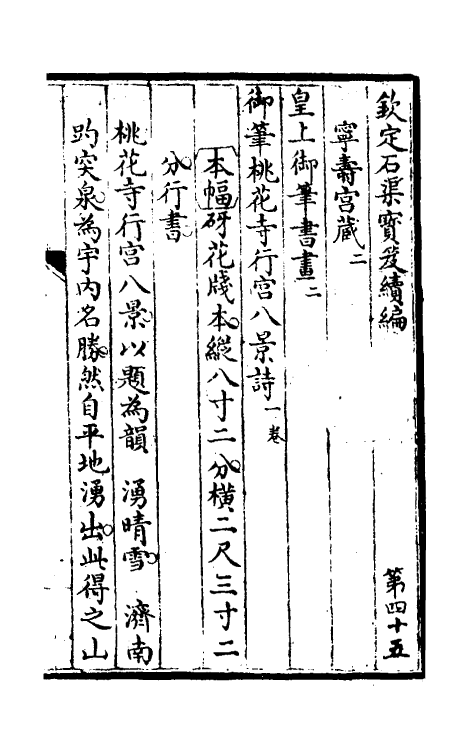 欽定石渠寶笈續編　第四十五
寧壽宮藏二
皇上御筆書畫二
御筆桃花寺行宮八景詩一卷
本幅砑花牋本縱八寸二分橫二尺三寸二
分行書
桃花寺行宮八景以題為韻　湧晴雪　濟南
趵突泉為宇内名勝然自平地湧出此得之山